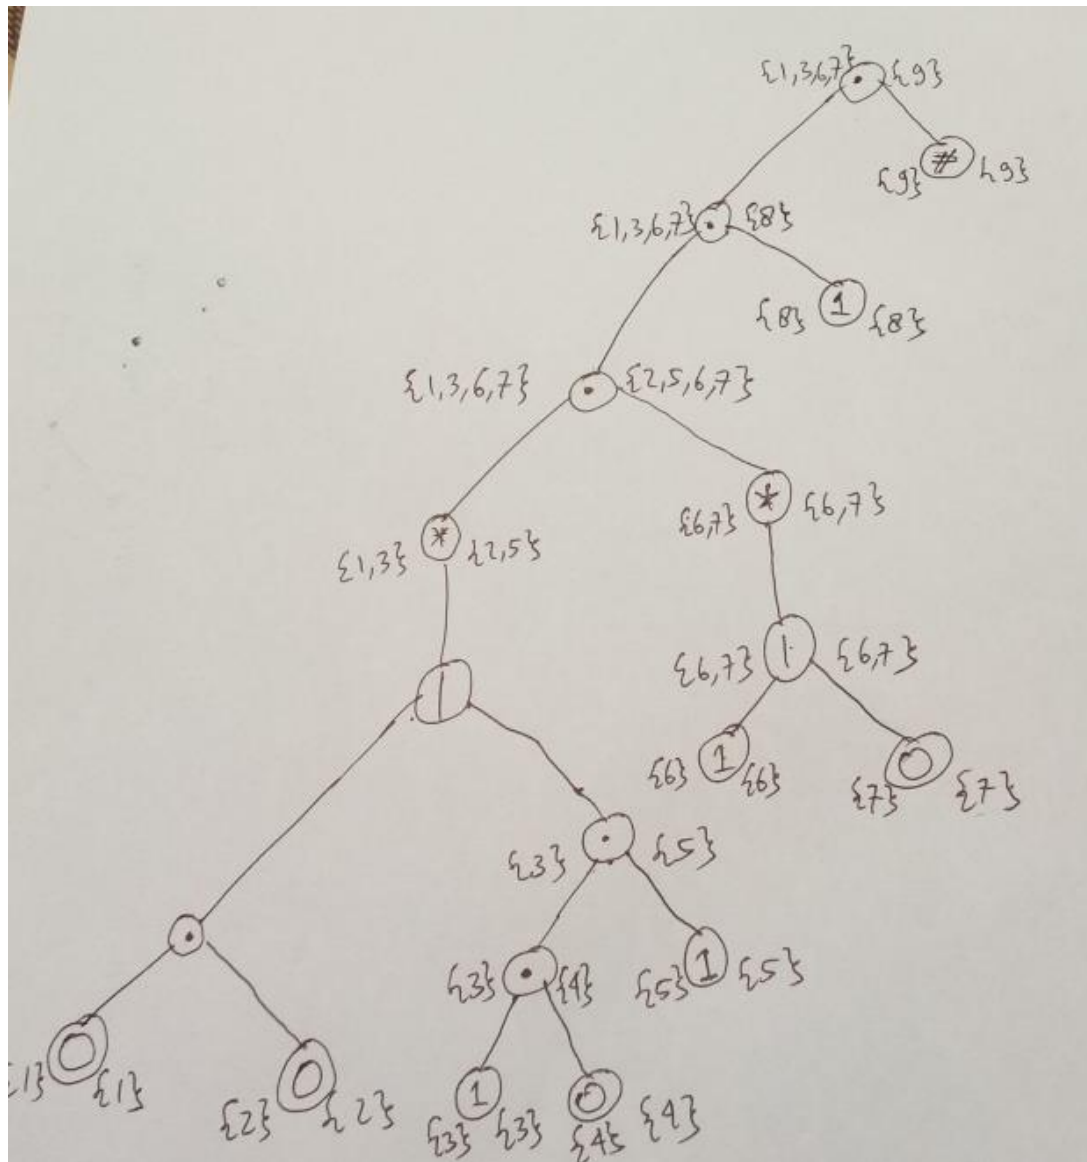 {1,3,6,7} . {9}
{9} # {9}
{1,3,6,7} . {8}
{8} 1 {8}
{1,3,6,7} . {2,5,6,7}
{6,7} * {6,7}
{1,3} * {2,5}
{6,7} | {6,7}
|
{6} 1 {6}
{7} 0 {7}
{3} . {5}
.
{3} . {4}
{5} 1 {5}
{1} 0 {1}
{2} 0 {2}
{3} 1 {3}
{4} 0 {4}